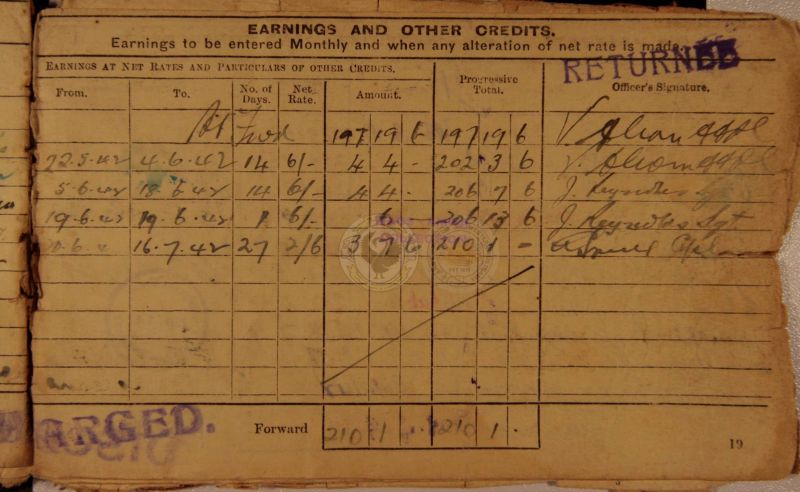 EARNINGS AND OTHER CREDITS.
Earnings to be entered Monthly and when any alteration of net rate is made.
RETURNED
EARNINGS AT NET RATES AND PARTICULARS OF OTHER CREDITS.
Progressive Total.
Officer's Signature.
From. To. No. of Days. Net Rate. Amount.
Bt Fwd 197 19 6 197 19 6
22.5.42 4.6.42 14 6/- 4 4 - 202 3 6
5.6.42 18.6.42 14 6/- 4 4 - 206 7 6 J. Reynolds Sgt
19.6.42 19.6.42 1 6/- 6 206 13 6 J. Reynolds Sgt
16.7.42 27 2/6 3 7 6 210 1 -
ARGED.
Forward 210 1 210 1 -
19